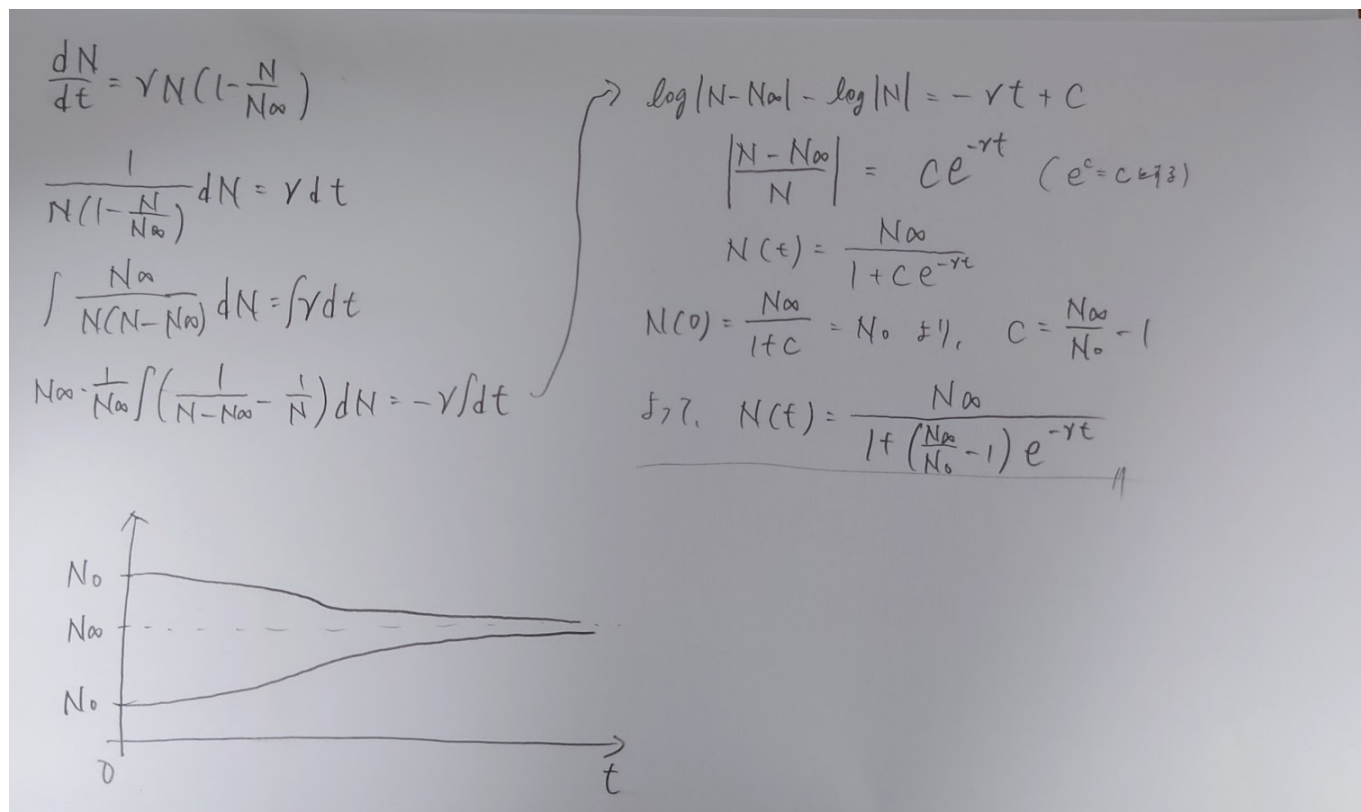 dN/dt = γN(1-N/N∞)
1/(N(1-N/N∞)) dN = γdt
∫ N∞/(N(N-N∞)) dN = ∫γdt
N∞・1/N∞ ∫(1/(N-N∞) - 1/N) dN = -γ∫dt
→ log|N-N∞| - log|N| = -γt + C
|(N-N∞)/N| = Ce^(-γt) (e^c = cとする)
N(t) = N∞/(1+Ce^(-γt))
N(0) = N∞/(1+C) = N₀ より、 C = N∞/N₀ - 1
よって、 N(t) = N∞/(1+(N∞/N₀ - 1)e^(-γt))
N₀
N∞
N₀
0
t